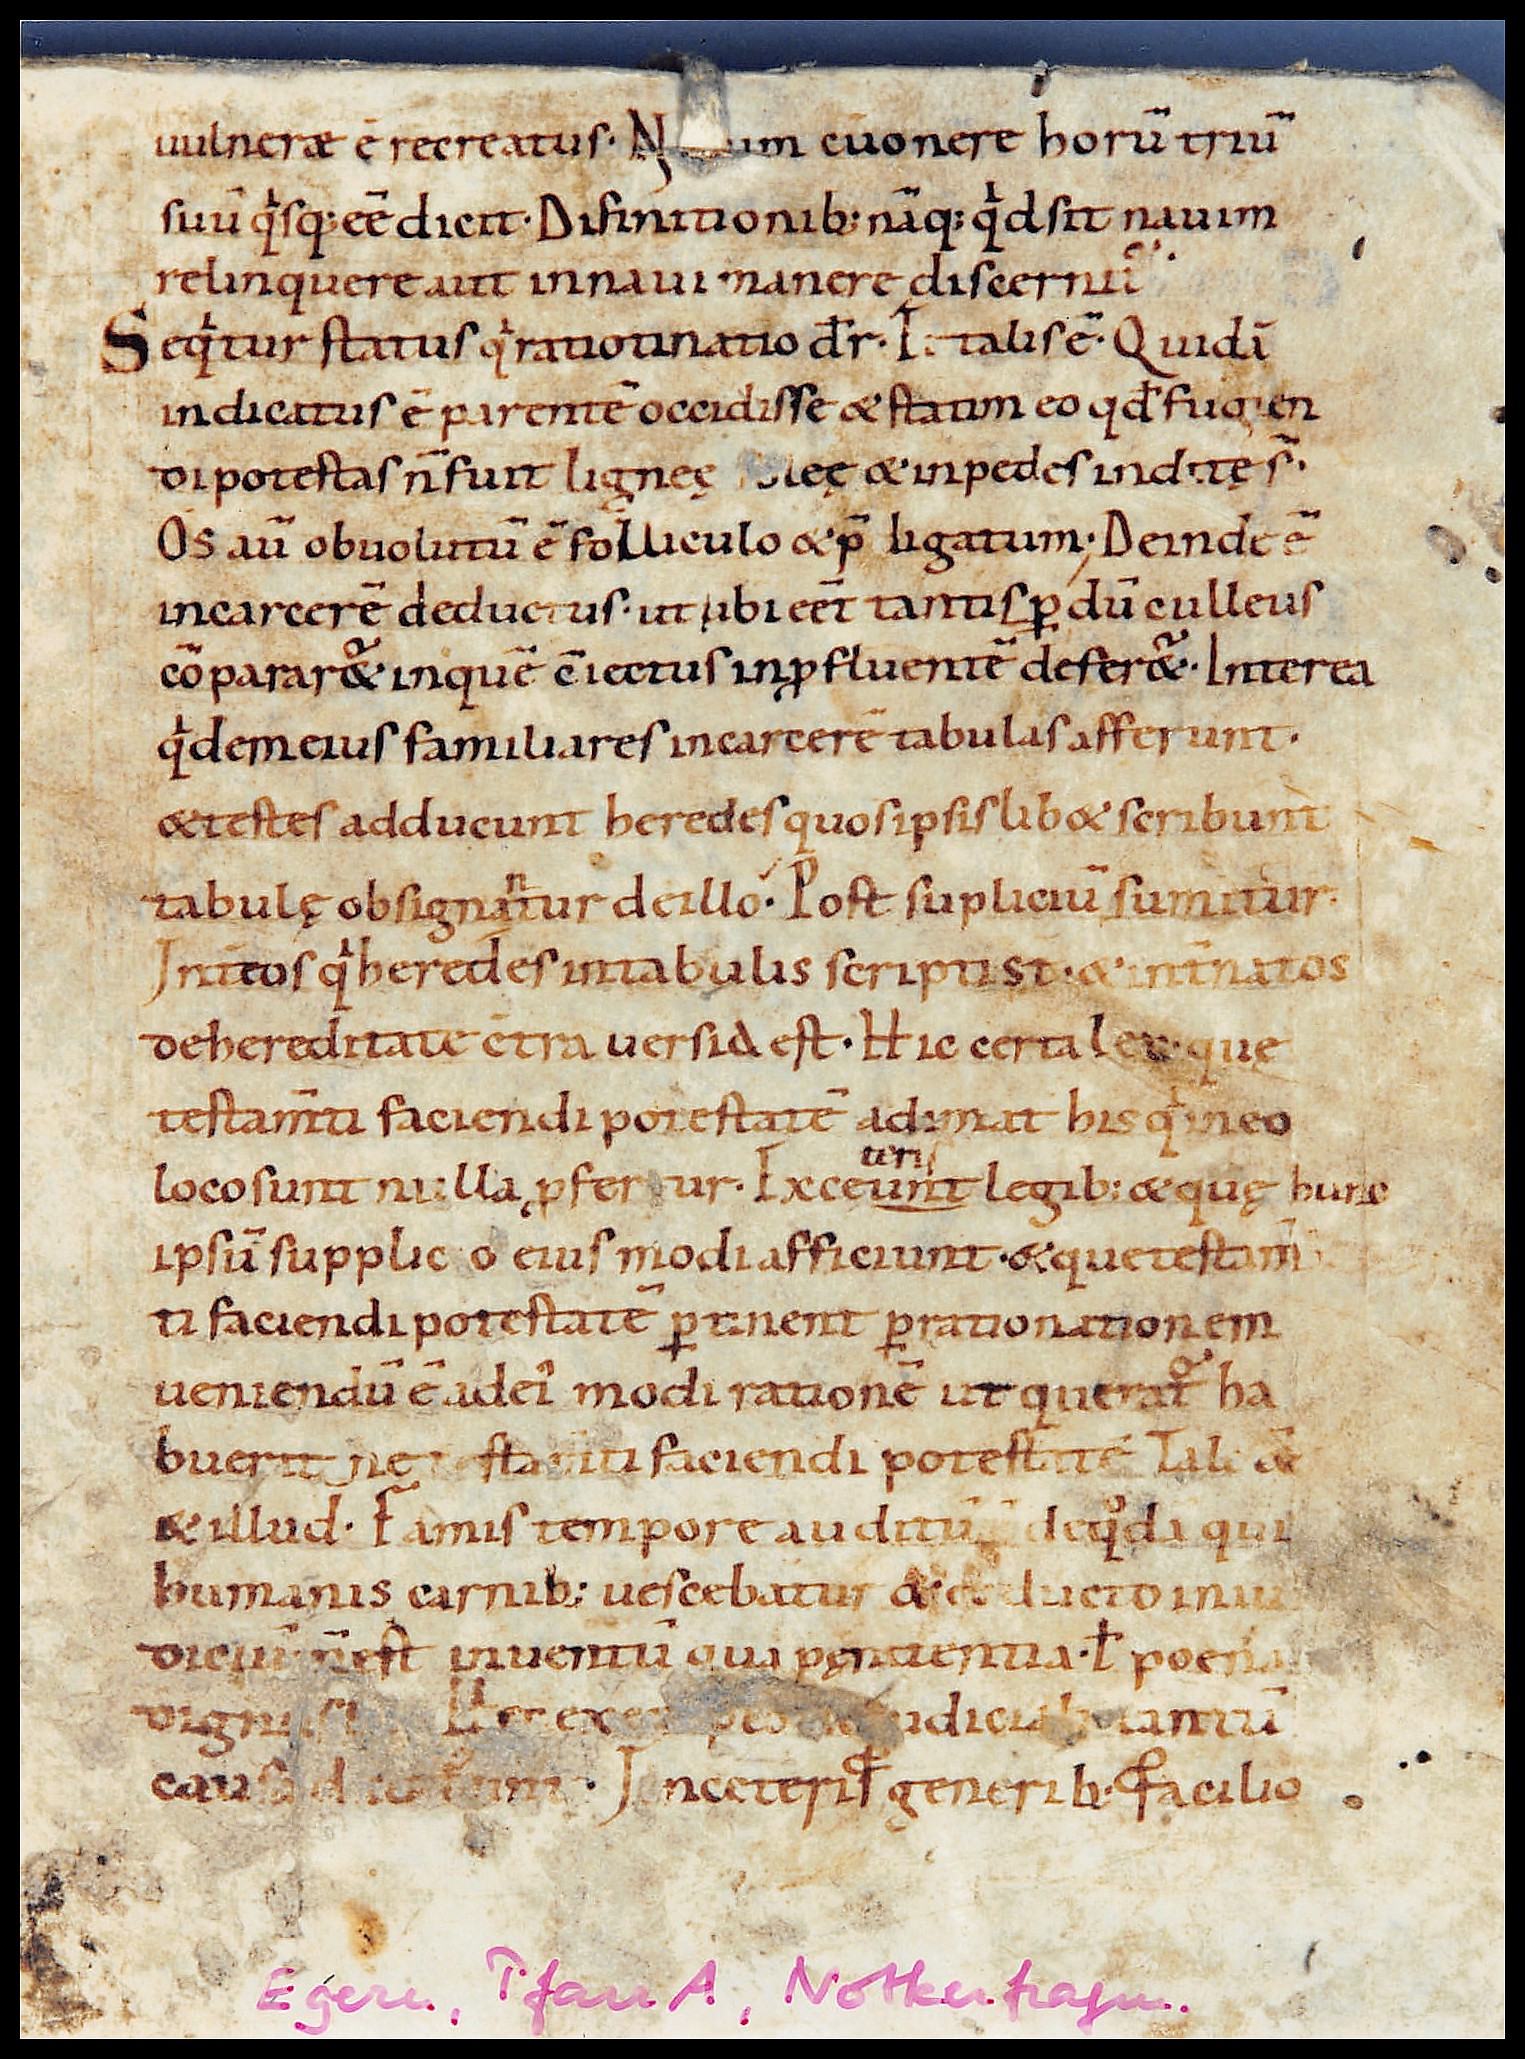 uulneræ ē recreatus· cūonere horū triū
suū qͥsq; eē dicit· Difinitionib; nāq; qͥd sit nauim
relinquere aut in naui manere discernū
Seqͥtur status qͥ ratiotinatio dr̄· talis ē· Quidā
indicatus ē parentē occidisse & statim eo qd̄ fugien
di potestas n̄ fuit ligneę & inpedes inditę s̄·
Os aū obuolutū ē folliculo & p̄ ligatum· Deinde ē
incarcerē deductus· ut ubi eēt tantisꝑ dū culleus
cōparar& inquē c̄iectus inꝓfluentē defer&· Interea
qͥdem eius familiares incarcerē tabulas afferunt·
& testes adducunt heredes quos ipsis lib& scribunt
tabulę obsignantur de illo· Post supliciū sumitur·
Int eos qͥ heredes intabulis scripti st̄· & int̄ natos
de hereditate c̄tra uersia est· Hic certa lex que
testam̄ti faciendi potestatē adimat his qͥ in eo
loco sunt nulla ꝓfertur· Exceunt teris legib; & quę hunc
ipsū supplicio eius modi afficiunt· & que testam̄
ti faciendi potestatē ꝑtinent ꝑrationationem
ueniendū ē idei modi rationē ut querat᷑ ha
buerit ne faciendi potestatē Tale
& illud· Famis tempore auditū deqͦdā qui
humanis carnib; uescebatur &
n̄ est inuentū qua pęnitentia· ł poena
tantū
In ceteris generib; facilio
Egern, Pfarr A, Notkerfragm.